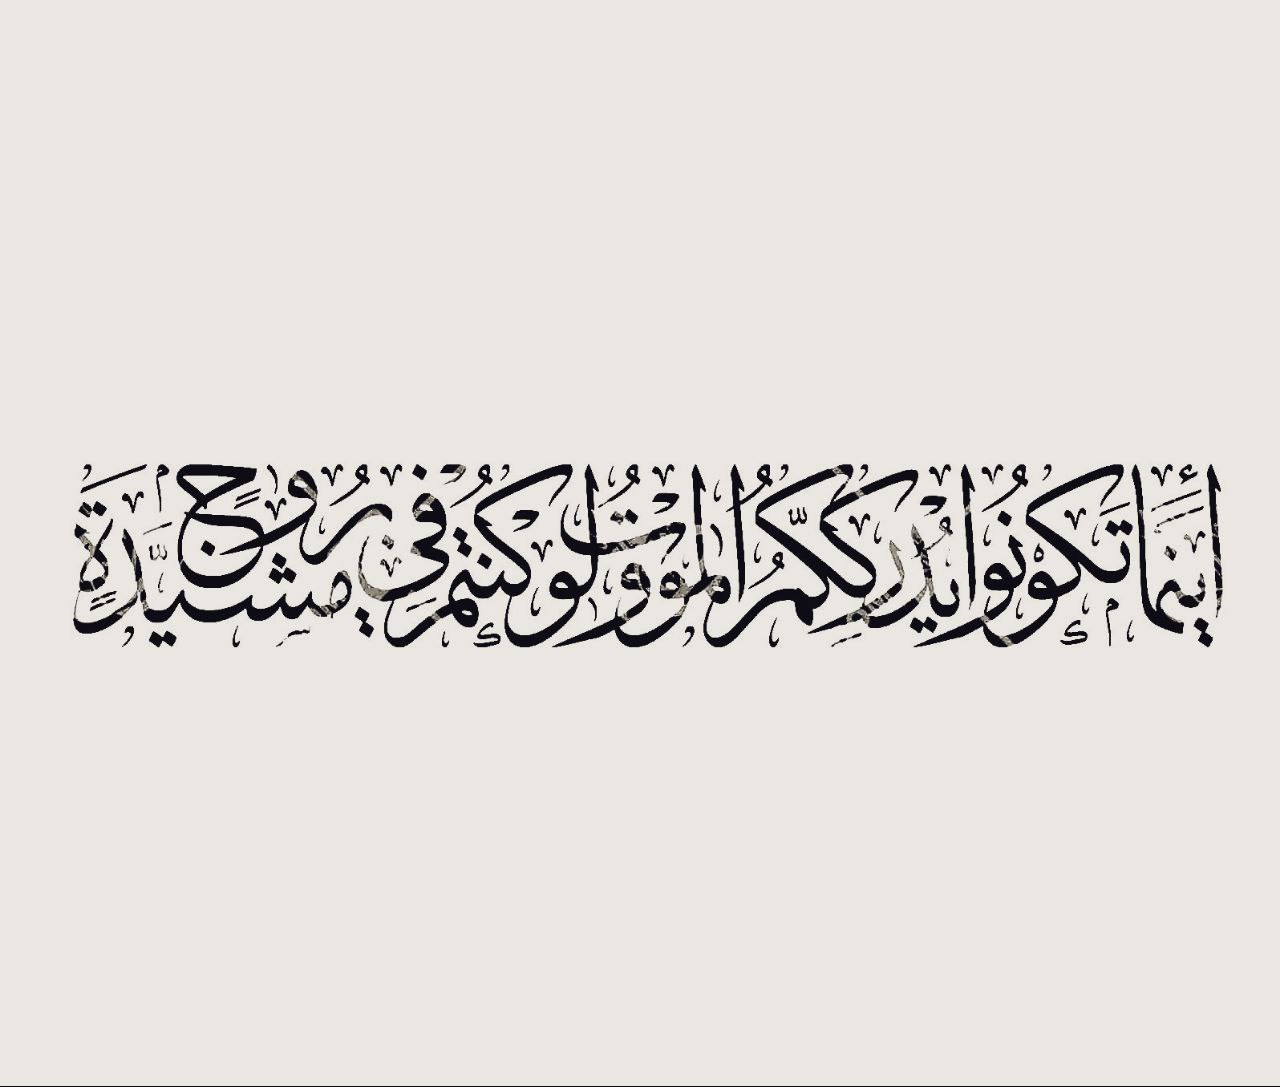 أَيْنَمَا تَكُونُوا يُدْرِككُّمُ الْمَوْتُ وَلَوْ كُنْتُمْ فِي بُرُوجٍ مُشَيَّدَةٍ